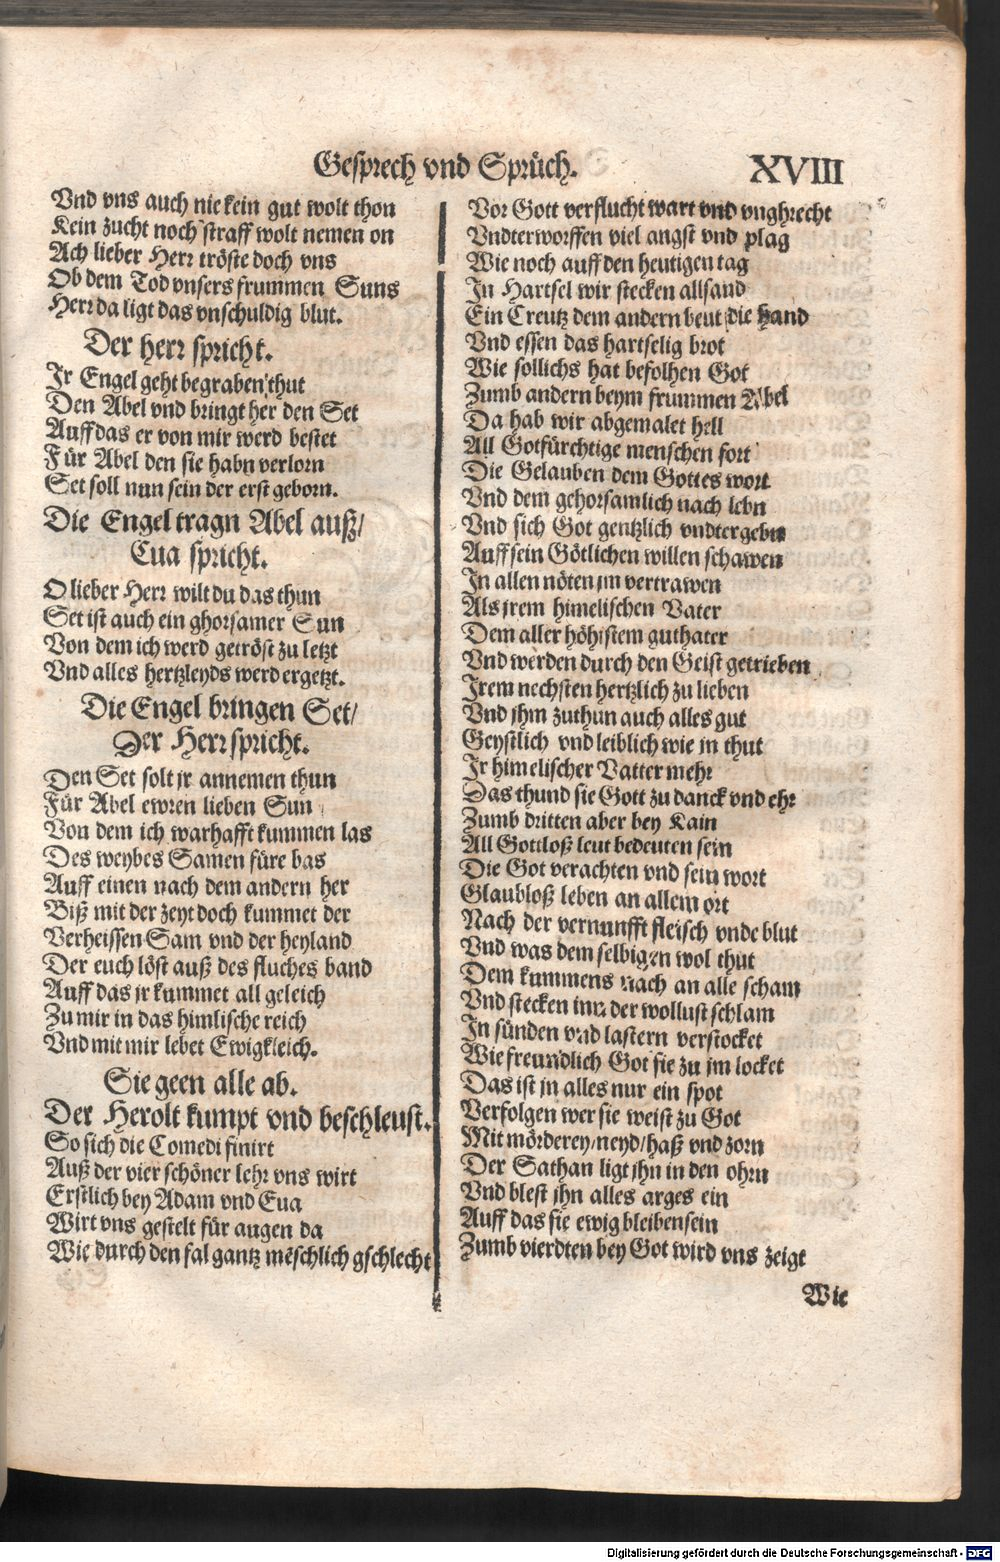 Gesprech vnd Sprüch. XVIII
Vnd vns auch nie kein gut wolt thon
Kein zucht noch straff wolt nemen on
Ach lieber Herr tröste doch vns
Ob dem Tod vnsers frummen Suns
Herr da ligt das vnschuldig blut.
Der herr spricht.
Ir Engel geht begraben thut
Den Abel vnd bringt her den Set
Auff das er von mir werd bestet
Für Abel den sie habn verlorn
Set soll nun sein der erst geborn.
Die Engel tragn Abel auß/
Eua spricht.
O lieber Herr wilt du das thun
Set ist auch ein ghorsamer Sun
Von dem ich werd getröst zu letzt
Vnd alles hertzleyds werd ergetzt.
Die Engel bringen Set/
Der Herr spricht.
Den Set solt jr annemen thun
Für Abel ewren lieben Sun
Von dem ich warhafft kummen las
Des weybes Samen füre bas
Auff einen nach dem andern her
Biß mit der zeyt doch kummet der
Verheissen Sam vnd der heyland
Der euch löst auß des fluches band
Auff das jr kummet all geleich
Zu mir in das himlische reich
Vnd mit mir lebet Ewigkleich.
Sie geen alle ab.
Der Herolt kumpt vnd beschleust.
So sich die Comedi finirt
Auß der vier schöner lehr vns wirt
Erstlich bey Adam vnd Eua
Wirt vns gestelt für augen da
Wie durch den fal gantz mēschlich gschlecht
Vor Gott verflucht wart vnd vnghrecht
Vndterworffen viel angst vnd plag
Wie noch auff den heutigen tag
In Hartsel wir stecken allsand
Ein Creutz dem andern beut die hand
Vnd essen das hartselig brot
Wie sollichs hat befolhen Got
Zumb andern beym frummen Abel
Da hab wir abgemalet hell
All Gotfürchtige menschen fort
Die Gelauben dem Gottes wort
Vnd dem gehorsamlich nach lebn
Vnd sich Got gentzlich vndtergebn
Auff sein Götlichen willen schawen
In allen nöten jm vertrawen
Als jrem himelischen Vater
Dem aller höhistem guthater
Vnd werden durch den Geist getrieben
Irem nechsten hertzlich zu lieben
Vnd jhm zuthun auch alles gut
Geystlich vnd leiblich wie jn thut
Ir himelischer Vatter mehr
Das thund sie Gott zu danck vnd ehr
Zumb dritten aber bey Kain
All Gottloß leut bedeuten sein
Die Got verachten vnd sein wort
Glaubloß leben an allem ort
Nach der vernunfft fleisch vnde blut
Vnd was dem selbigen wol thut
Dem kummens nach an alle scham
Vnd stecken inn der wollust schlam
In sünden vnd lastern verstocket
Wie freundlich Got sie zu jm locket
Das ist jn alles nur ein spot
Verfolgen wer sie weist zu Got
Mit mörderey/neyd/haß vnd zorn
Der Sathan ligt jhn in den ohrn
Vnd blest jhn alles arges ein
Auff das sie ewig bleiben sein
Zumb vierdten bey Got wird vns zeigt
Wie
Digitalisierung gefördert durch die Deutsche Forschungsgemeinschaft - DFG